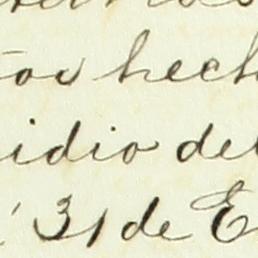 tos hech
idio del
31 de E